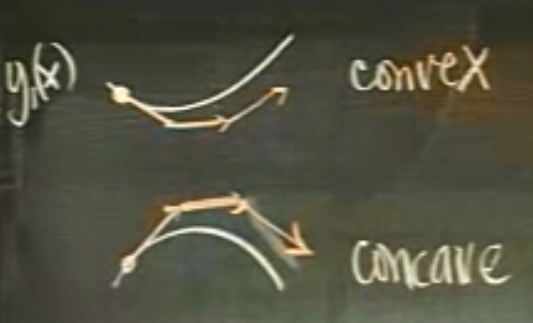 y₁(x)
convex
concave